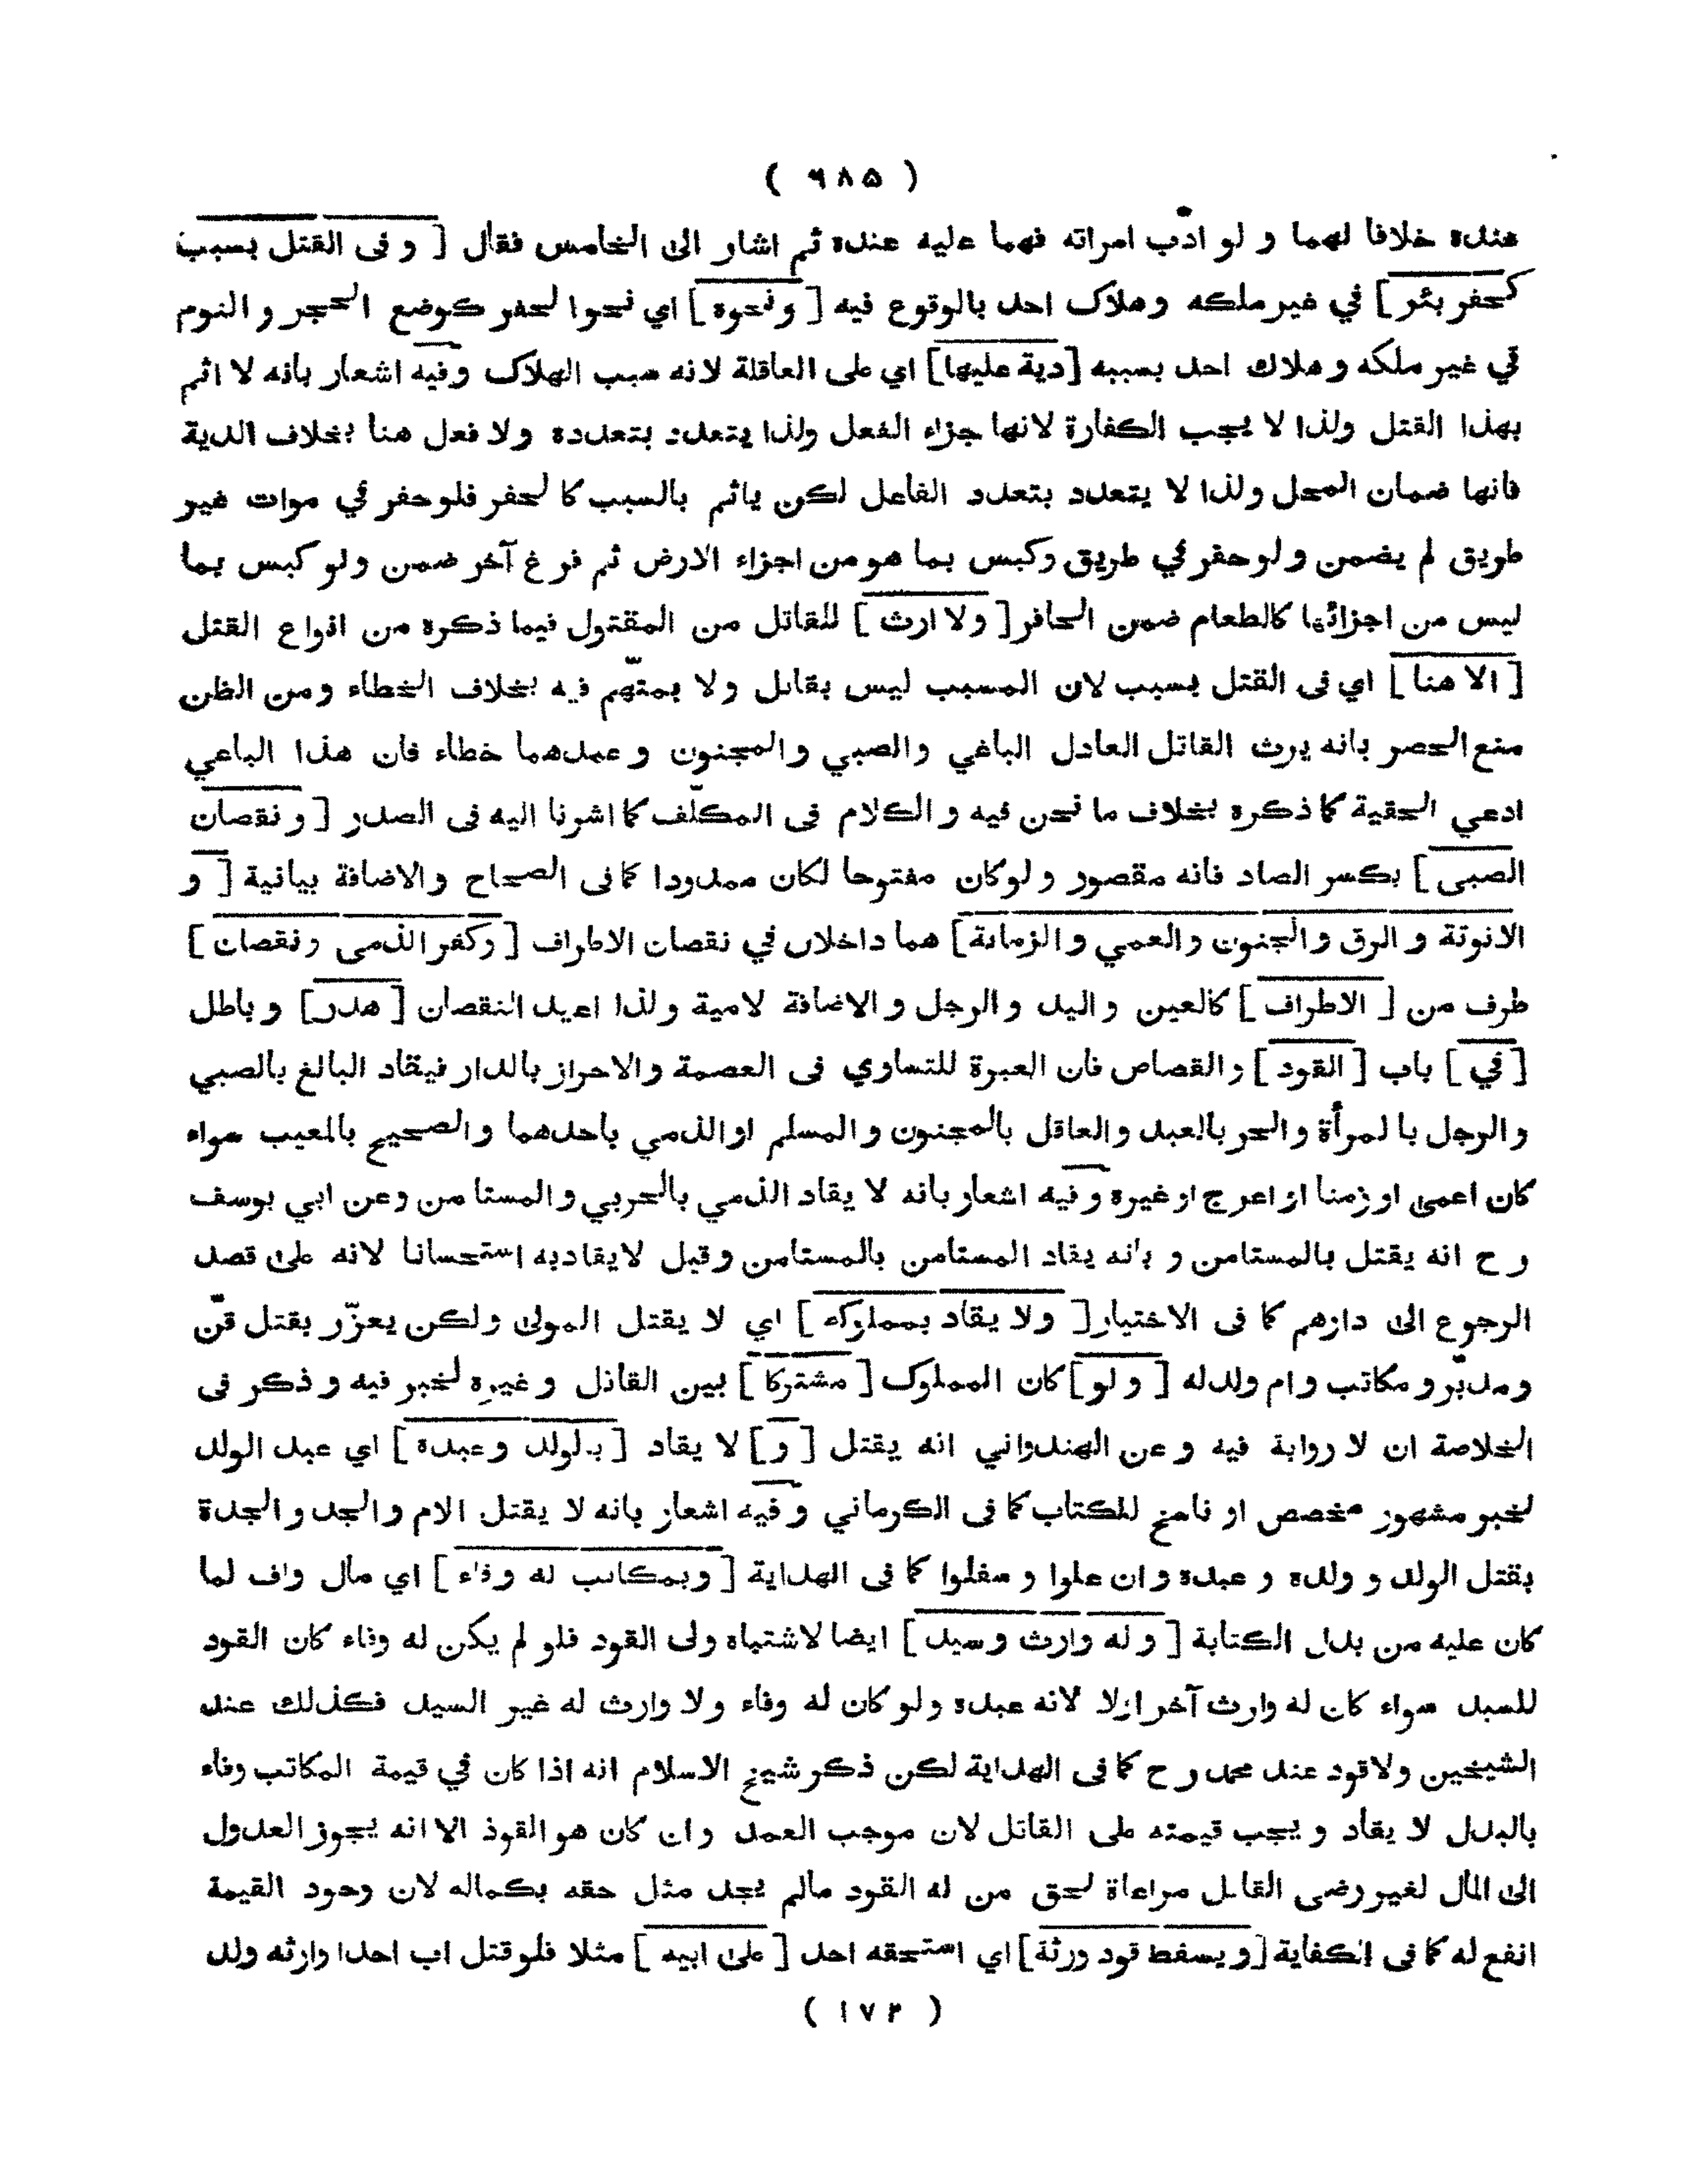 ( ٦٨٥ )
عنده خلافا لهما و لو ادّب امراته فهما عليه عنده ثم اشار الى الخامس فقال [ و فى القتل بسبب
كحفر بئر ] في غير ملكه وهلاك احد بالوقوع فيه [ ونحوه ] اي نحوا لحفر كوضع الحجر و النوم
في غير ملكه و هلاك احد بسببه [ دية عليها ] اي على العاقلة لانه سبب الهلاك وفيه اشعار بانه لا اثم
بهذا القتل ولذا لا يجب الكفارة لانها جزاء الفعل ولذا يتعدد بتعدده ولا فعل هنا بخلاف الدية
فانها ضمان المحل ولذا لا يتعدد بتعدد الفاعل لكن ياثم بالسبب كا لحفر فلو حفر في موات غير
طريق لم يضمن ولو حفر في طريق وكبس بما هو من اجزاء الارض ثم فرغ آخر ضمن ولو كبس بما
ليس من اجزائها كالطعام ضمن الحافر [ ولا ارث ] للقاتل من المقتول فيما ذكره من انواع القتل
[ الا هنا ] اي فى القتل بسبب لان المسبب ليس بقاتل ولا بمتّهم فيه بخلاف الخطاء ومن الظن
منع الحصر بانه يرث القاتل العادل الباغي والصبي والمجنون وعمدهما خطاء فان هذا الباغي
ادعي الحقية كما ذكره بخلاف ما نحن فيه و الكلام فى المكلّف كما اشرنا اليه فى الصدر [ و نقصان
الصبى ] بكسر الصاد فانه مقصور ولو كان مفتوحا لكان ممدودا كما فى الصحاح والاضافة بيانية [ و
الانوثة و الرق و الجنون والعمي والزمانة ] هما داخلان في نقصان الاطراف [ وكفر الذمى ونقصان ]
طرف من [ الاطراف ] كالعين واليد والرجل والاضافة لامية ولذا اعيد النقصان [ هدر ] وباطل
[ في ] باب [ القود ] والقصاص فان العبرة للتساوي فى العصمة والاحراز بالدار فيقاد البالغ بالصبي
والرجل با لمرأة والحر بالعبد والعاقل بالمجنون والمسلم اوالذمي باحدهما والصحيح بالمعيب سواء
كان اعمى او زمنا او اعرج او غيره وفيه اشعار بانه لا يقاد الذمي بالحربي والمستا من وعن ابي يوسف
ر ح انه يقتل بالمستامن و بانه يقاد المستامن بالمستامن وقيل لايقادبه استحسانا لانه على قصد
الرجوع الى دارهم كما فى الاختيار [ ولا يقاد بمملوكه ] اي لا يقتل المولى ولكن يعزّر بقتل قنّ
ومدبّر و مكاتب وام ولدله [ و لو ] كان المملوك [ مشتركا ] بين القاتل وغيره لخبر فيه و ذكر فى
الخلاصة ان لا رواية فيه وعن الهندواني انه يقتل [ و ] لا يقاد [ بالولد وعبده ] اي عبد الولد
لخبر مشهور مخصص او ناسخ للكتاب كما فى الكرماني وفيه اشعار بانه لا يقتل الام والجد والجدة
بقتل الولد و ولده و عبده وان علوا و سفلوا كما فى الهداية [ وبمكاتب له وفاء ] اي مال واف لما
كان عليه من بدل الكتابة [ و له وارث وسيد ] ايضا لاشتباه ولى القود فلو لم يكن له وفاء كان القود
للسيد سواء كان له وارث آخر اولا لانه عبده ولو كان له وفاء ولا وارث له غير السيد فكذلك عند
الشيخين ولاقود عند محمد ر ح كما فى الهداية لكن ذكر شيخ الاسلام انه اذا كان في قيمة المكاتب وفاء
بالبدل لا يقاد ويجب قيمته على القاتل لان موجب العمد وان كان هو القود الا انه يجوز العدول
الى المال لغير رضى القاتل مراعاة لحق من له القود مالم يجد مثل حقه بكماله لان وجود القيمة
انفع له كما فى الكفاية [ ويسقط قود ورثة ] اي استحقه احد [ على ابيه ] مثلا فلو قتل اب احدا وارثه ولد
( ١٧٢ )